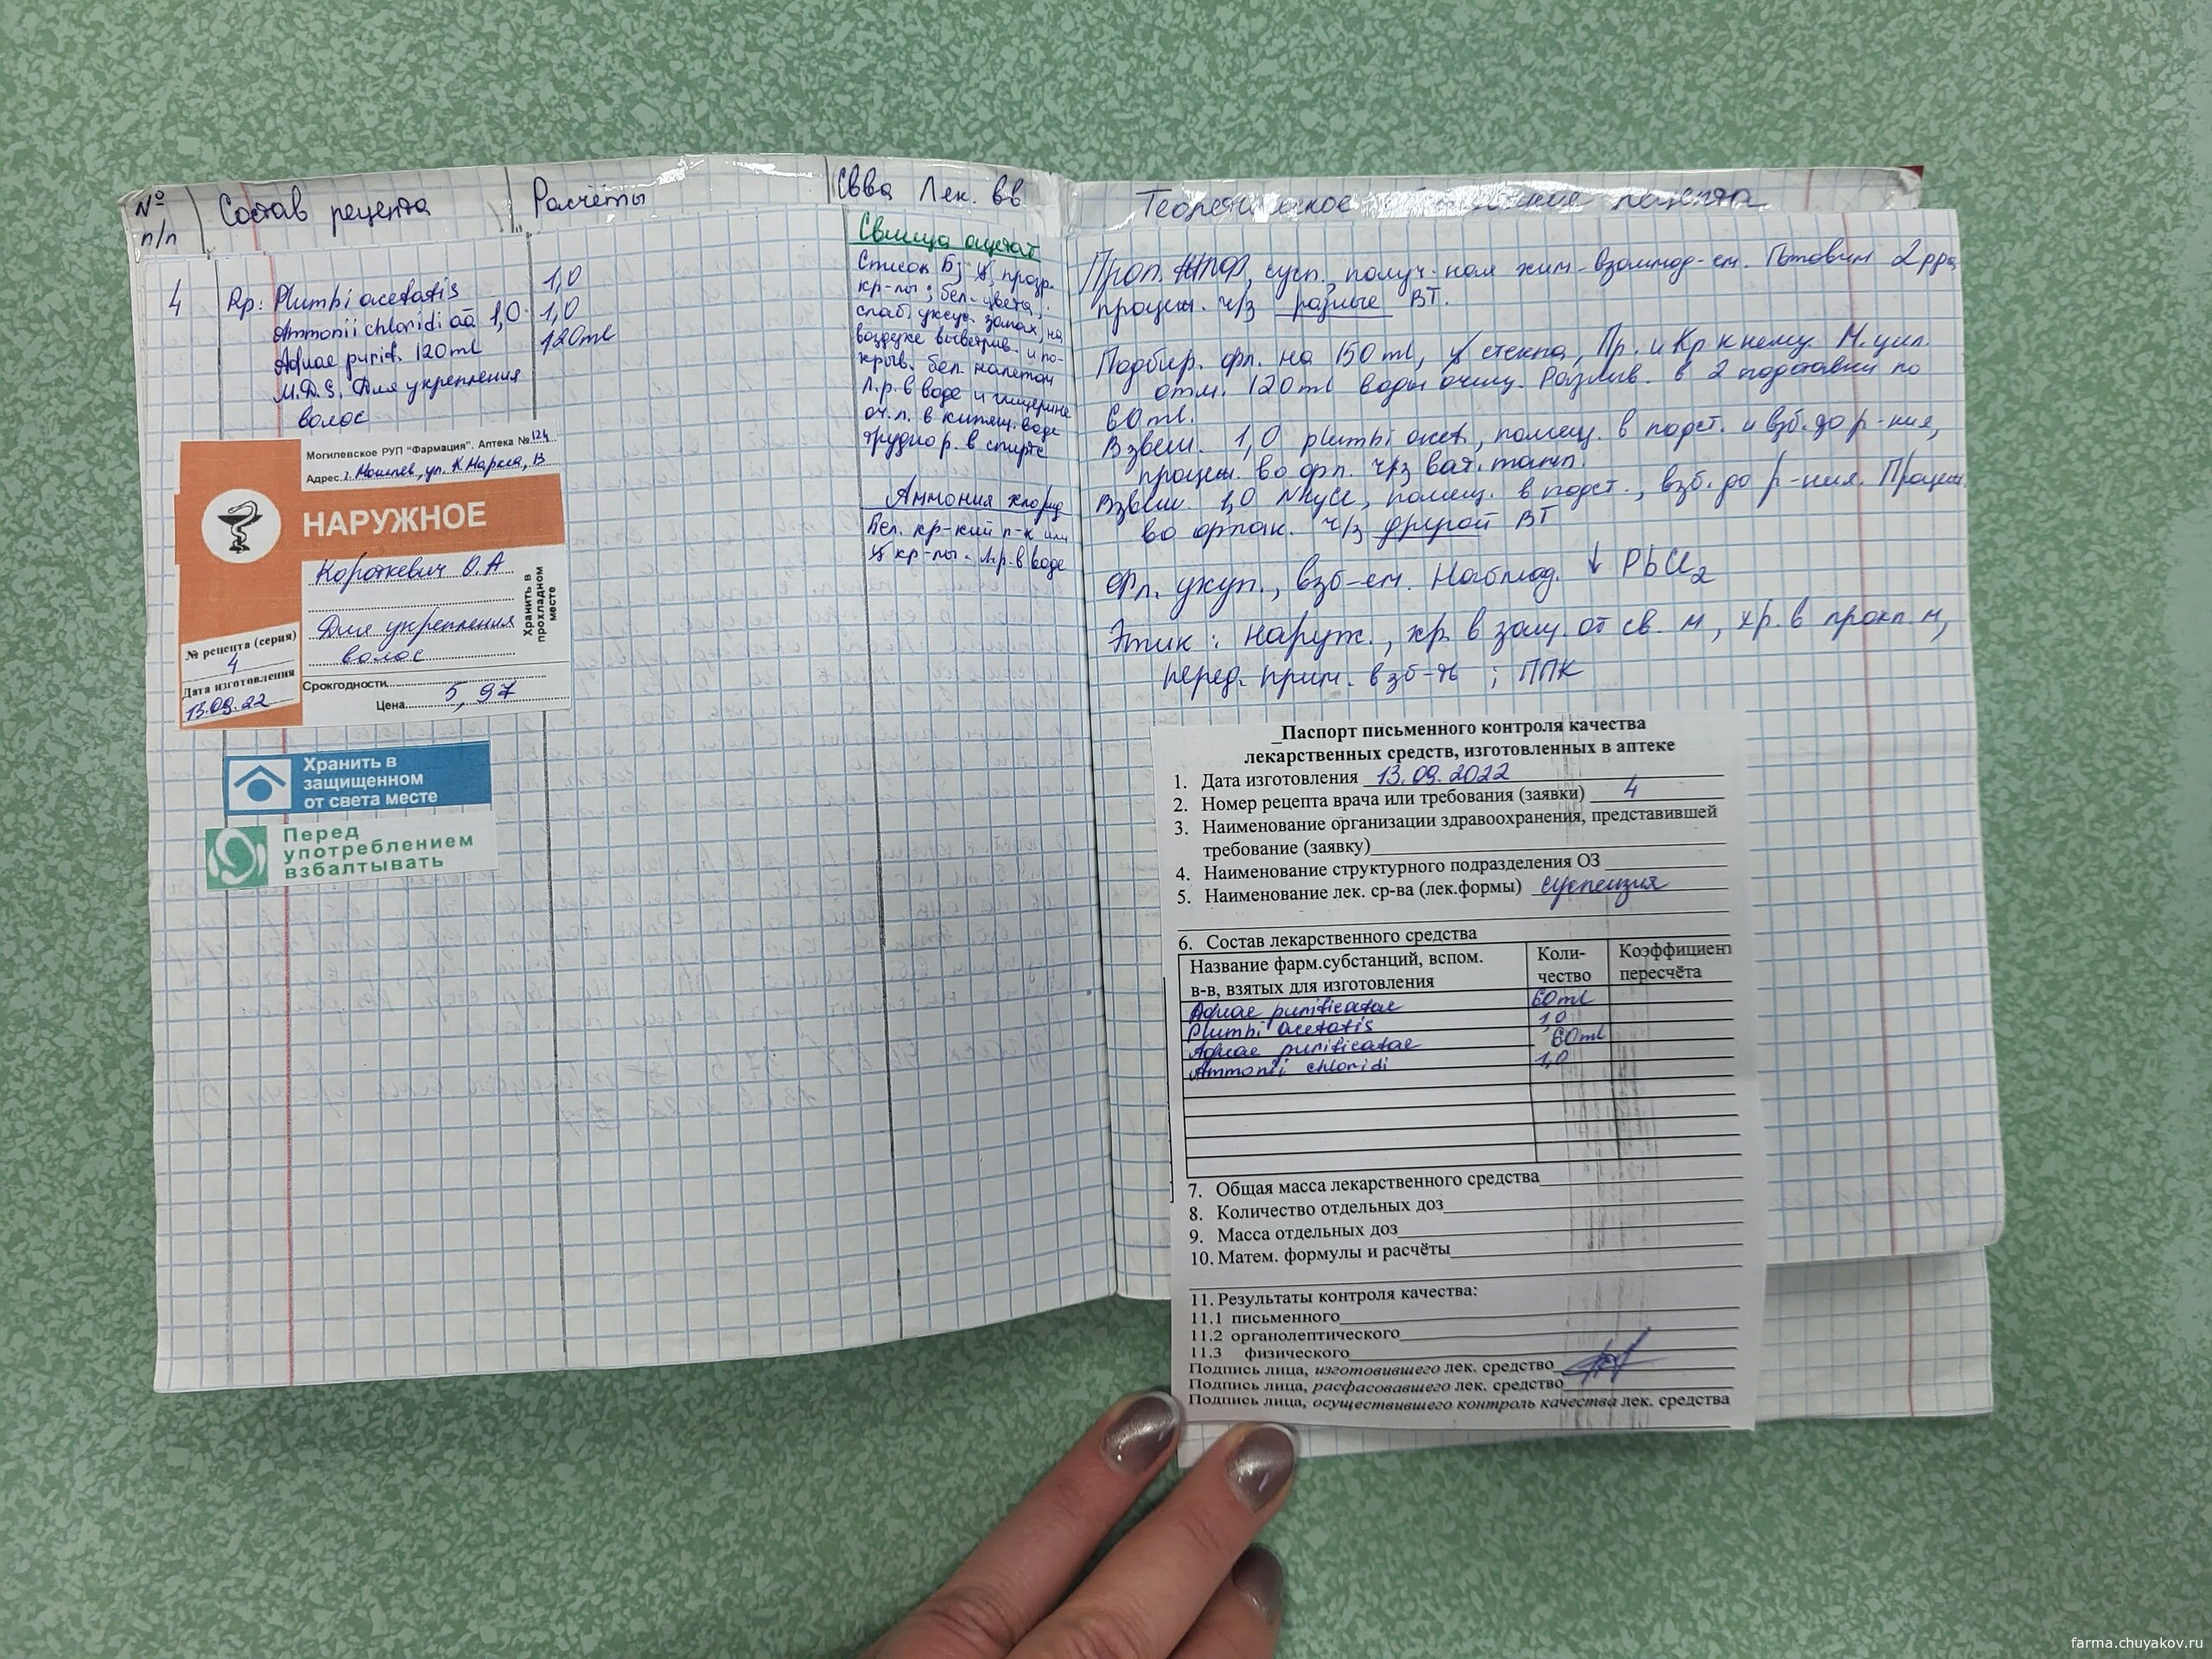 № п/п
Состав рецепта
Расчёты
Свва Лек. вв
Теоретическое рецепта
4
Rp: Plumbi acetatis
Ammonii chloridi āā 1,0
Aquae purif. 120ml
M.D.S. Для укрепления
волос
1,0
1,0
120ml
Свинца ацетат
Список Б; прозр.
кр-лы; бел. цвета,
слаб. уксус. запах, на
воздухе выветрив. и по-
крыв. бел. налетом
Л.р. в воде и глицерине
оч.л. в кипящ. воде
трудно р. в спирте
Аммония хлорид
Бел. кр-кий п-к или
кр-лы. л.р. в воде
Могилевское РУП "Фармация". Аптека № 124
Адрес г. Могилев, ул. К Маркса, 13
НАРУЖНОЕ
Короткевич О.А
Для укрепления
волос
Хранить в
прохладном
месте
№ рецепта (серия)
4
Дата изготовления
13.09.22
Срок годности
Цена 5,97
Хранить в
защищенном
от света месте
Перед
употреблением
взбалтывать
Проп. сусп., получ-ная хим-взаимод-ем. Готовим 2 рра
процеж. ч/з разные ВТ.
Подбир. фл. на 150 ml, стекла, Пр. и Кр к нему. М. цил.
отм. 120 ml воды очищ. Разлив. в 2 подставки по
60 ml.
Взвеш. 1,0 plumbi acet, помещ. в подст. и взб. до р-ния,
процеж. во фл. ч/з ват. тамп.
Взвеш. 1,0 NH4Cl, помещ. в подст., взб. до р-ния. Процеж.
во флак. ч/з другой ВТ
Фл. укуп., взб-ем. Наблюд. ↓ PbCl2
Этик: наруж., хр. в защ. от св. м, хр. в прохл. м,
перед. прим. взб-ть; ППК
Паспорт письменного контроля качества
лекарственных средств, изготовленных в аптеке
1. Дата изготовления 13.09.2022
2. Номер рецепта врача или требования (заявки) 4
3. Наименование организации здравоохранения, представившей
требование (заявку)
4. Наименование структурного подразделения ОЗ
5. Наименование лек. ср-ва (лек.формы) суспензия
6. Состав лекарственного средства
Название фарм.субстанций, вспом.
в-в, взятых для изготовления
Коли-
чество
Коэффициент
пересчёта
Aquae purificatae 60ml
Plumbi acetatis 1,0
Aquae purificatae 60ml
Ammonii chloridi 1,0
7. Общая масса лекарственного средства
8. Количество отдельных доз
9. Масса отдельных доз
10. Матем. формулы и расчёты
11. Результаты контроля качества:
11.1 письменного
11.2 органолептического
11.3 физического
Подпись лица, изготовившего лек. средство
Подпись лица, расфасовавшего лек. средство
Подпись лица, осуществившего контроль качества лек. средства
farma.chuyakov.ru